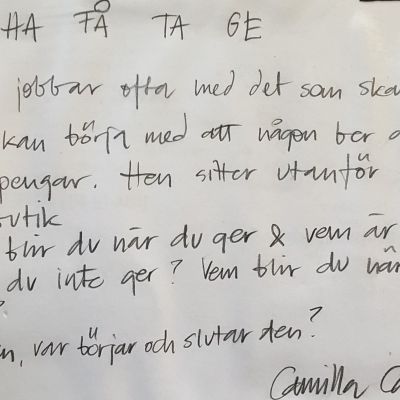 HA FÅ TA GE
jobbar ofta med det som ska
kan börja med att någon ber
pengar. Hen sitter utanför
butik
blir du när du ger & vem är
du inte ger? Vem blir du när
?
n, var börjar och slutar den?
Camilla